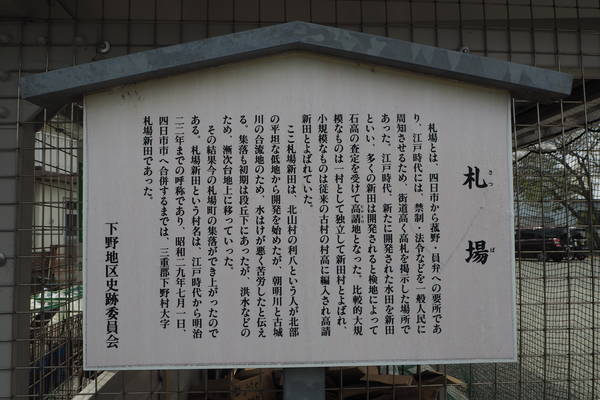 札場
さつば
札場とは、四日市から菰野・員弁への要所であ
り、江戸時代には、禁制・法令などを一般人民に
周知させるため、街道高く高札を掲示した場所で
あった。江戸時代、新たに開発された水田を新田
といい、多くの新田は開発されると検地によって
石高の査定を受けて高請地となった。比較的大規
模なものは一村として独立して新田村とよばれ、
小規模なものは従来の古村の村高に編入され高請
新田とよばれていた。
ここ札場新田は、北山村の利八という人が北部
の平坦な低地から開発を始めたが、朝明川と古城
川の合流地のため、水はけが悪く苦労したと伝え
る。集落も初期は段丘下にあったが、洪水などの
ため、漸次台地上に移っていった。
その結果今の札場町の集落ができ上がったので
ある。札場新田という村名は、江戸時代から明治
二二年までの呼称であり、昭和二九年七月一日、
四日市市へ合併するまでは、三重郡下野村大字
札場新田であった。
下野地区史跡委員会